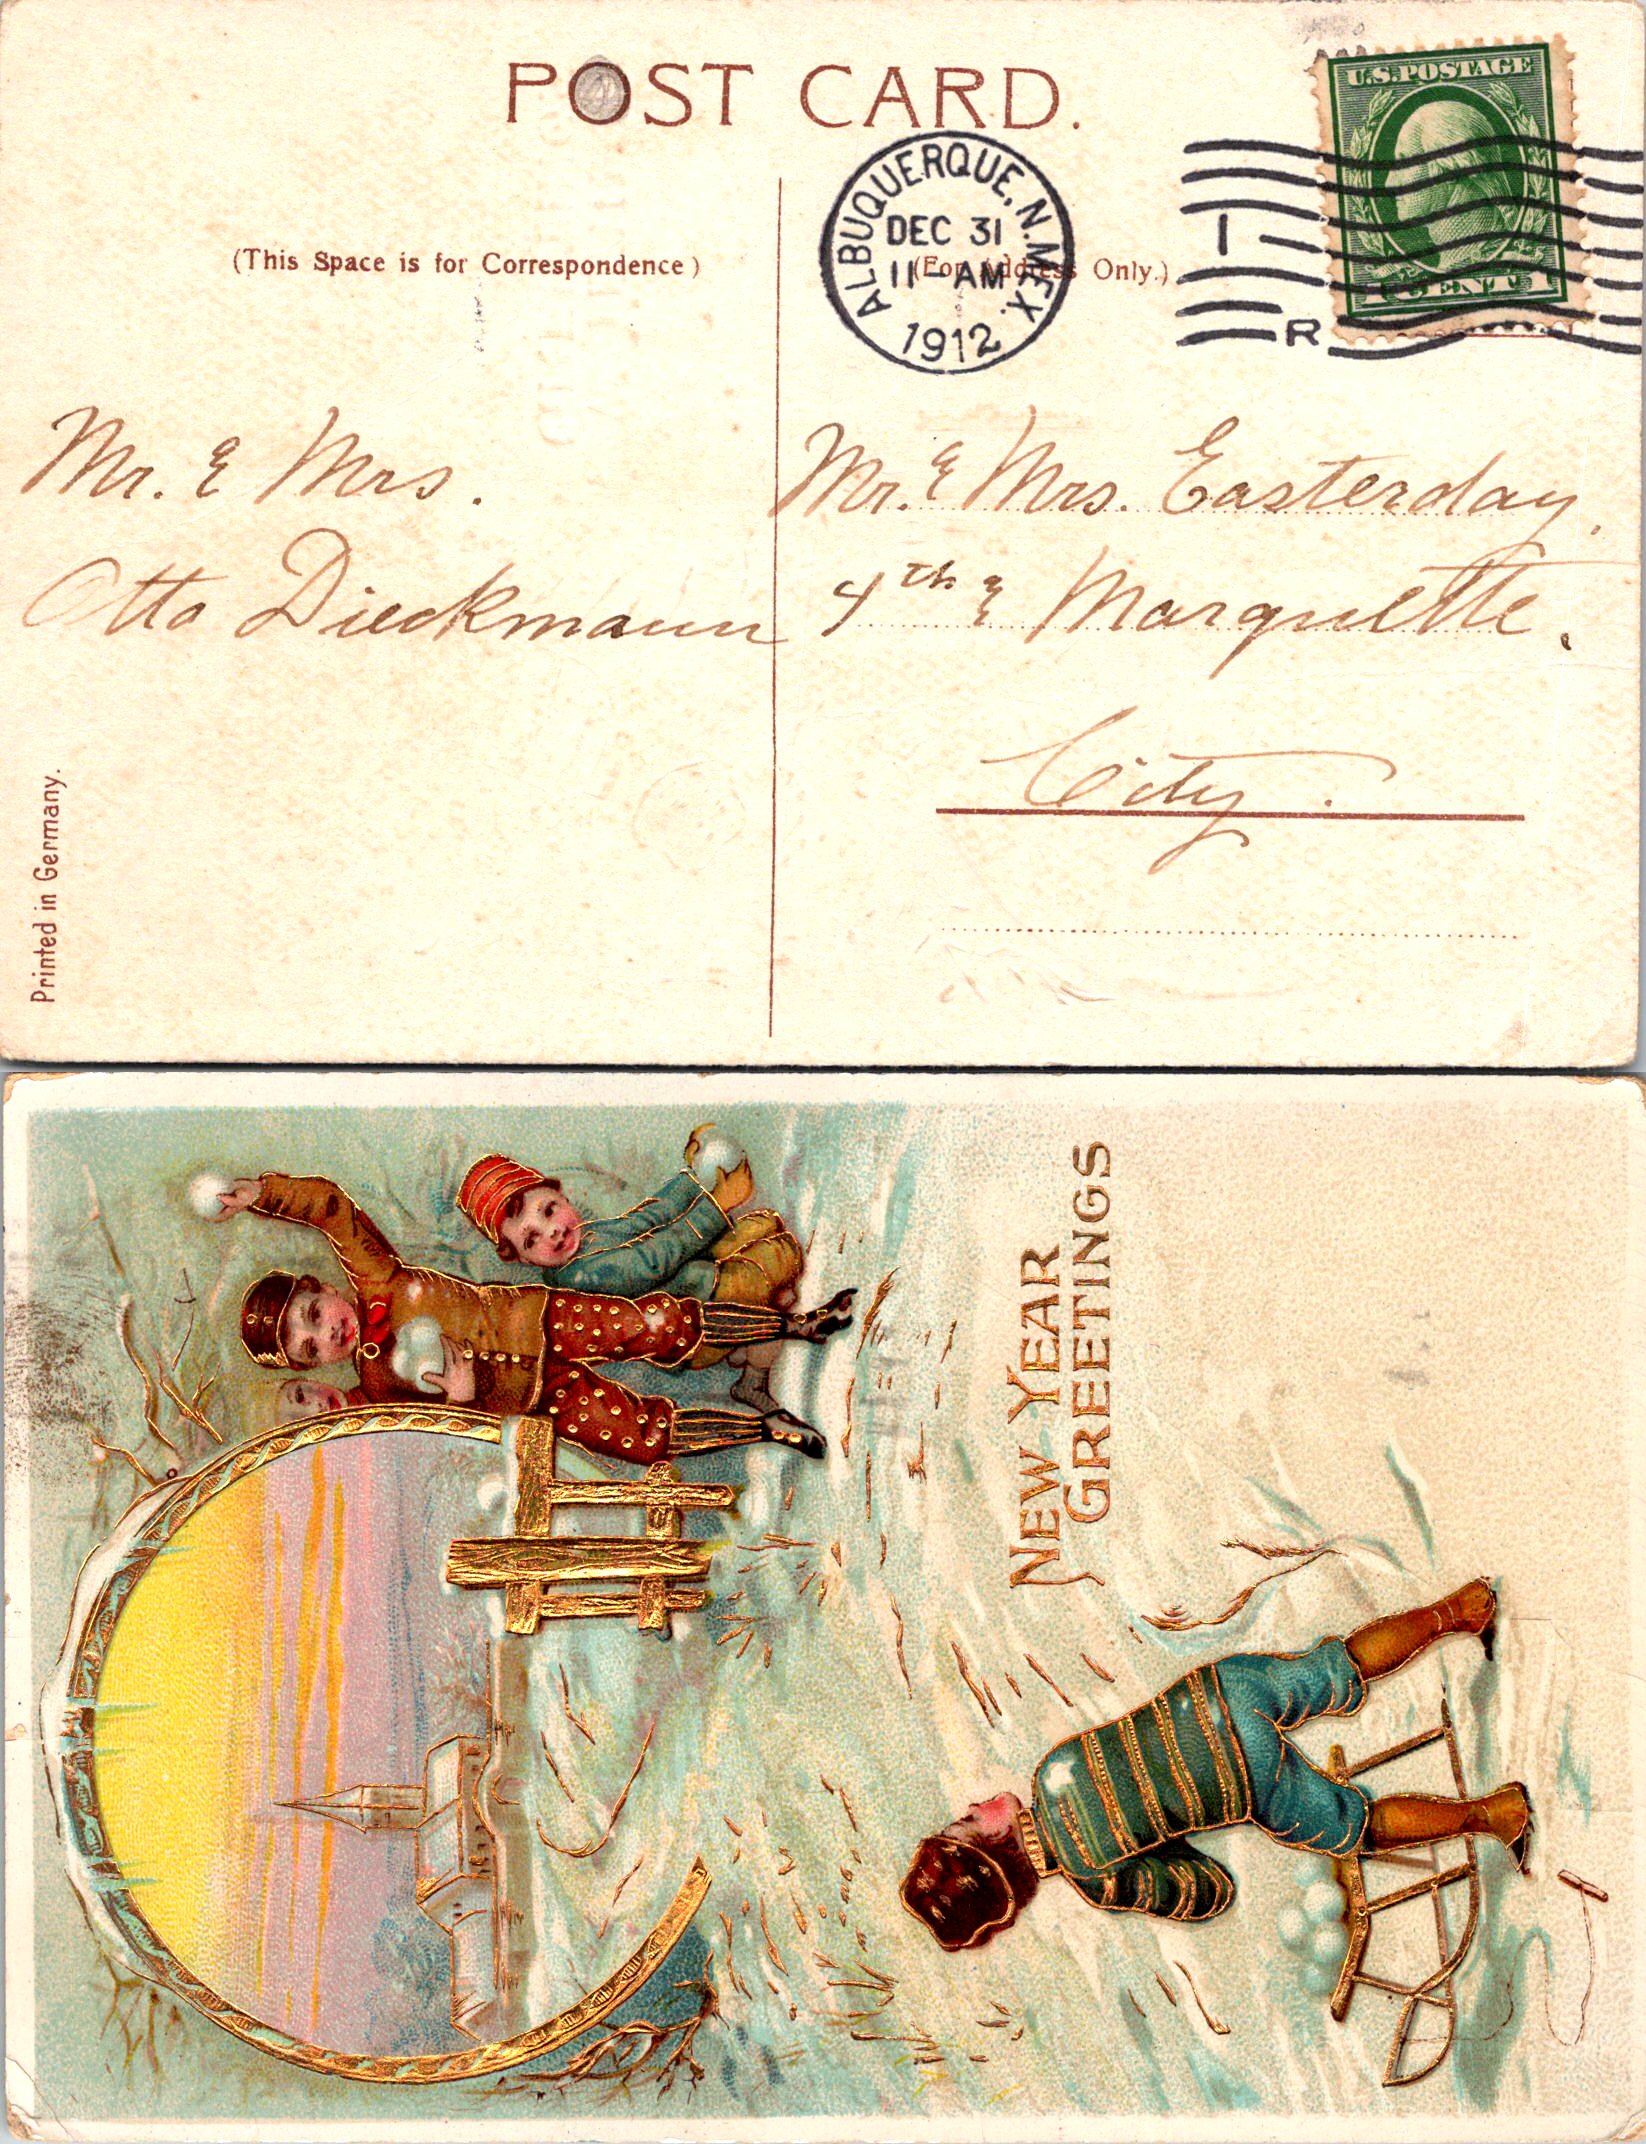 POST CARD.
U.S. POSTAGE
ALBUQUERQUE, N. MEX.
DEC 31
11-AM
1912
1
R
(This Space is for Correspondence)
(For Address Only.)
Mr. & Mrs.
Otto Dieckmann
Mr. & Mrs. Easterday,
4th & Marquette.
City.
Printed in Germany.
NEW YEAR
GREETINGS